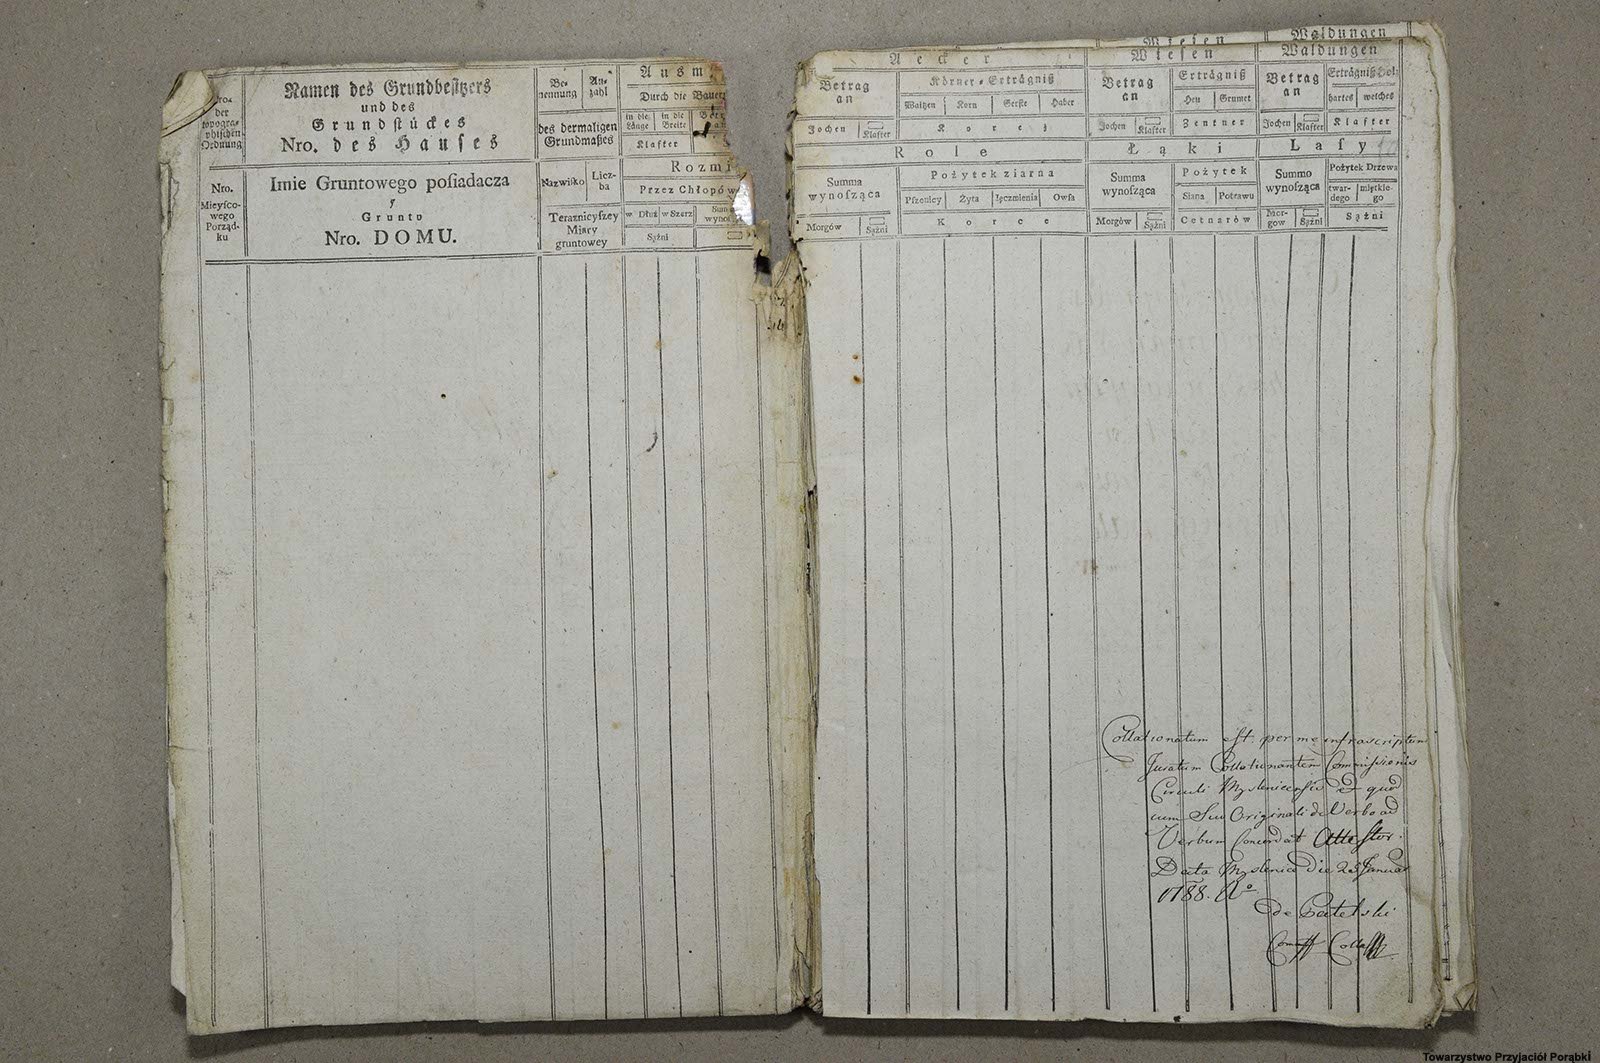 Nro.
der
topogra=
phischen
Ordnung
Namen des Grundbesitzers
und des
Grundstückes
Nro. des Hauses
Be-
nennung
An-
zahl
des dermaligen
Grundmaßes
Ausm
Durch die Bauern
in die
Länge
in die
Breite
Klafter
Nro.
Mieysco-
wego
Porząd-
ku
Imie Gruntowego posiadacza
y
Gruntu
Nro. DOMU.
Nazwisko
Licz-
ba
Teraznieyszey
Miary
gruntowey
Rozmi
Przez Chłopów
w Dłuż
w Szerz
Sążni
Aecker
Wiesen
Waldungen
Wiesen
Waldungen
Betrag
an
Jochen
Klafter
Körner=Erträgniß
Waitzen
Korn
Gerste
Haber
Korez
Betrag
an
Jochen
Klafter
Erträgniß
Heu
Grumet
Zentner
Betrag
an
Jochen
Klafter
Erträgniß Holz
hartes
weiches
Klafter
Role
Łąki
Lasy
Summa
wynosząca
Morgów
Sążni
Pożytek ziarna
Pszenicy
Żyta
Jęczmienia
Owsa
Korce
Summa
wynosząca
Morgów
Sążni
Pożytek
Siana
Potrawu
Cetnarów
Summo
wynosząca
Mor-
gow
Sążni
Pożytek Drzewa
twar-
dego
miętkie-
go
Sążni
Collationatum est. per me infrascriptum
Juratum Collationantem Commissionis
Circuli Myslenicensis & quod
cum Suo Originali de Verbo ad
Verbum Concordat Attestor.
Data Myslenice Die Januar
1788. Ao
de
Towarzystwo Przyjaciół Porąbki